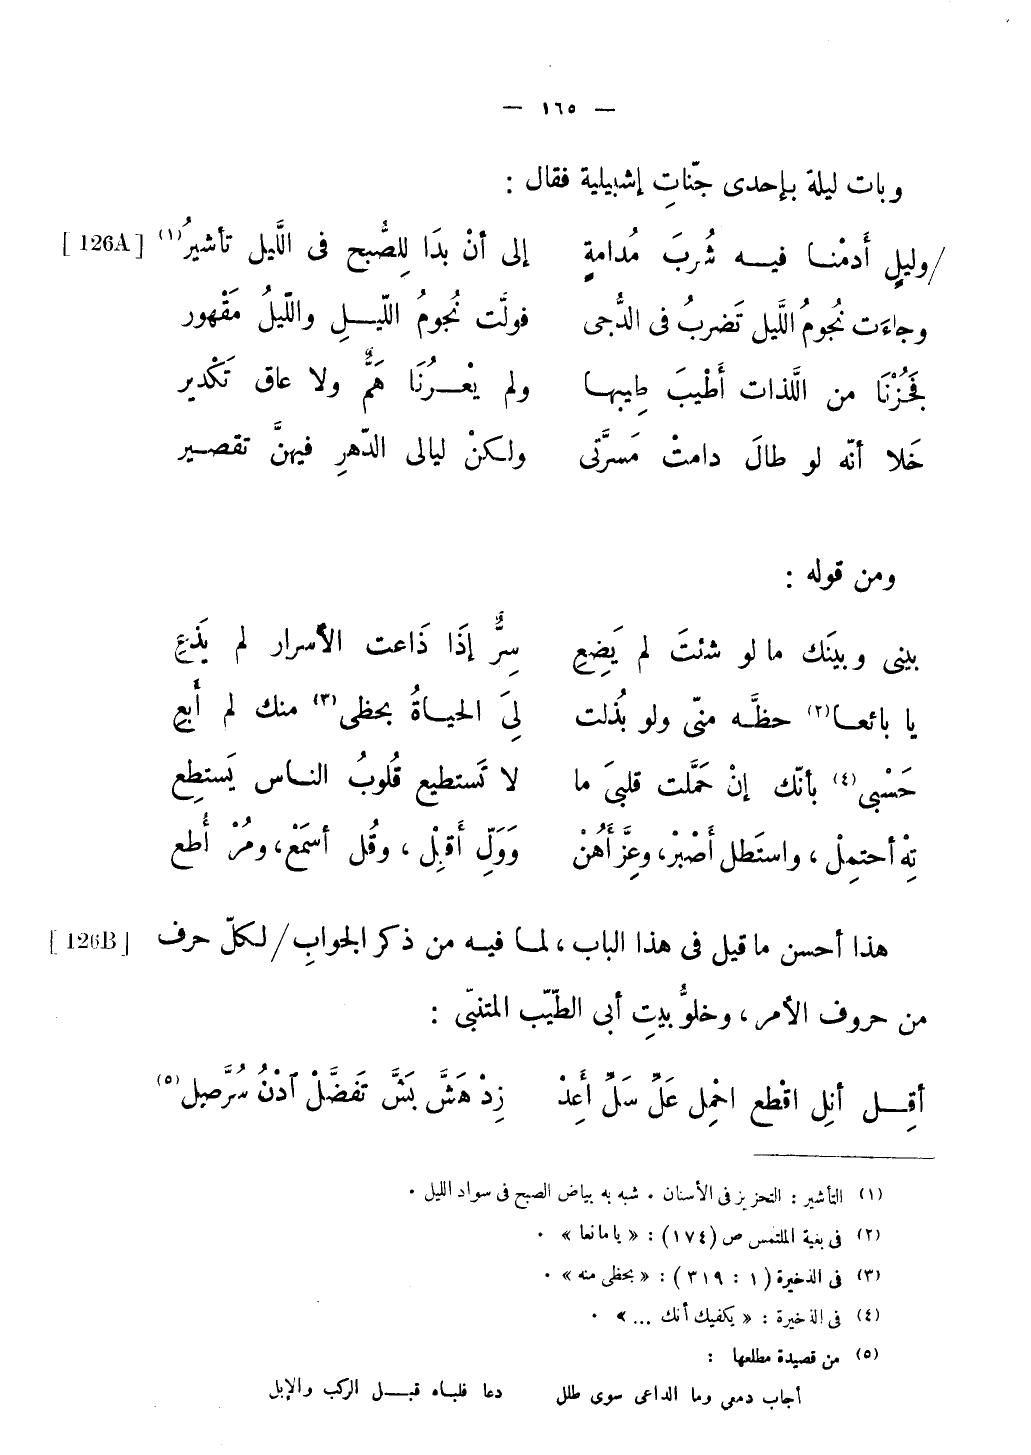 — ١٦٥ —
وبات ليلة بإحدى جنّاتِ إشبيلية فقال :
/وليلٍ أَدمْنـا فيـه شُربَ مُدامةٍ إلى أنْ بدَا لِلصُّبح فى اللَّيل تأشيرُ(١) [126A]
وجاءت نُجومُ اللَّيل تَضربُ فى الدُّجى فولَّت نُجومُ اللّيـلِ واللّيلُ مَقْهور
فَحُزْنَا من اللَّذات أَطْيبَ طِيبها ولم يعْـرُنَا هَمٌّ ولا عاق تَكْدير
خَلا أنّه لو طالَ دامتْ مَسرَّتى ولـكنْ ليالى الدّهرِ فيهنَّ تقصـير
ومن قوله :
بينى وبينَك ما لو شئتَ لم يَضِعِ سِرٌّ إذَا ذَاعت الأسرار لم يَذعِ
يا بائعـا(٢) حظَّـه منّى ولو بُذلت لِىَ الحيـاةُ بحظى(٣) منك لم أَبعِ
حَسْبى(٤) بأنّك إنْ حَمَّلت قلبىَ ما لا تَستطيع قُلوبُ النـاس يَستطِع
تِهْ أحتمِلْ ، واستَطل أَصْبرْ، وعِزَّ أَهُنْ وَوَلِّ أَقبِلْ ، وقُل أسمَعْ، ومُرْ أُطع
هذا أحسن ما قيل فى هذا الباب ، لمـا فيـه من ذكر الجوابِ/ لـكلّ حرف [126B]
من حروف الأمر ، وخلوُّ بيتِ أبى الطّيّب المتنبّى :
أقِـل أنِل اقْطع احْمِل عَلِّ سَلِّ أَعِدْ زِدْ هَشَّ بَشَّ تَفضَّلْ آدْنُ سُرَّ صِل(٥)
(١) التأشير : التحزيز فى الأسنان . شبه به بياض الصبح فى سواد الليل .
(٢) فى بغية الملتمس ص (١٧٤) : « يا مانعا » .
(٣) فى الذخيرة (١ : ٣١٩) : « بحظى منه » .
(٤) فى الذخيرة : « يكفيك أنك ... » .
(٥) من قصيدة مطلعها :
أجاب دمعى وما الداعى سوى طلل دعا فلبـاه قبـل الركب والإبل